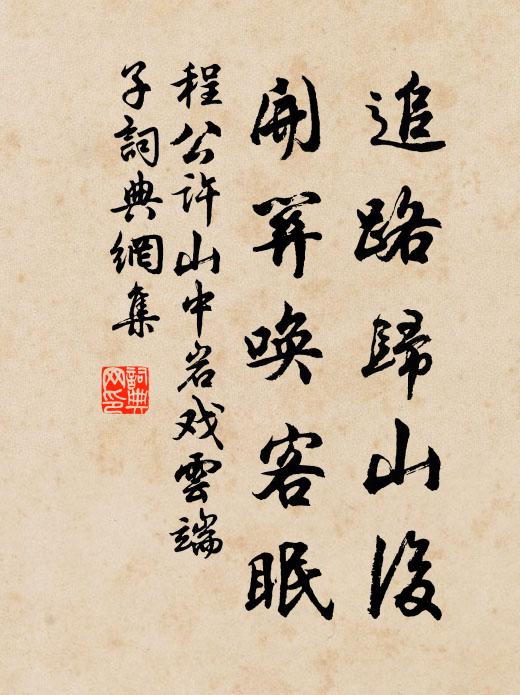 追路歸山後
開笲喚客眠
程公許山中岩戏雲端
子詞典網集
詞典网印